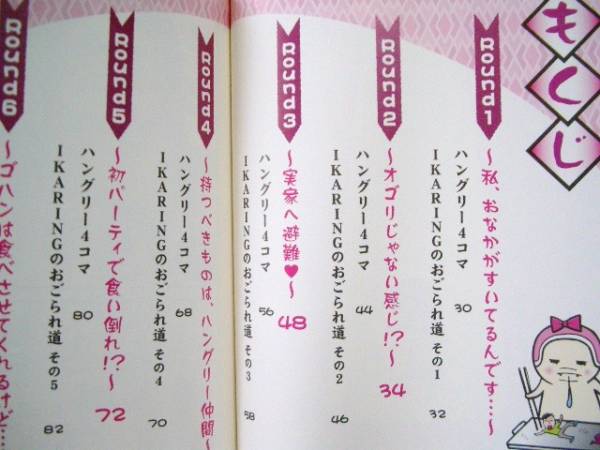 もくじ
Round1
～私、おなかがすいてるんです…～
ハングリー4コマ 30
IKARINGのおごられ道 その1 32
Round2
～オゴリじゃない感じ!?～ 34
ハングリー4コマ 44
IKARINGのおごられ道 その2 46
Round3
～実家へ避難♥～ 48
ハングリー4コマ 56
IKARINGのおごられ道 その3 58
Round4
～持つべきものは、ハングリー仲間～
ハングリー4コマ 68
IKARINGのおごられ道 その4 70
Round5
～初パーティで食い倒れ!?～ 72
ハングリー4コマ 80
IKARINGのおごられ道 その5 82
Round6
～ゴハンは食べさせてくれるけど…